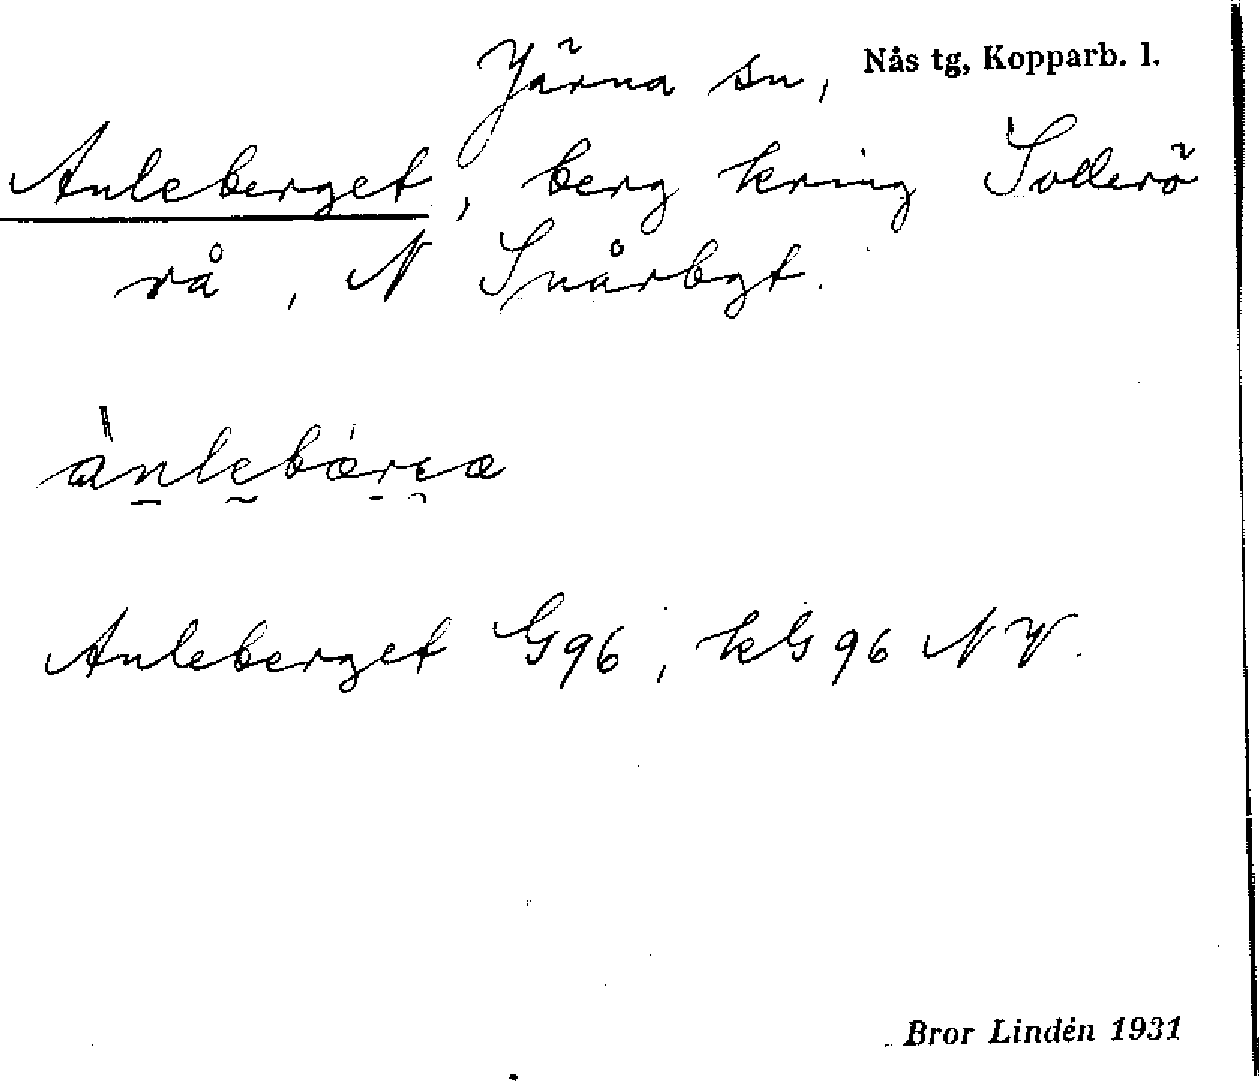 Järna sn, Nås tg, Kopparb. l.
Anleberget, berg kring Sollerö
rå, N Snårbgt.
Anleberget G96, kG96 NV.
Bror Lindén 1931